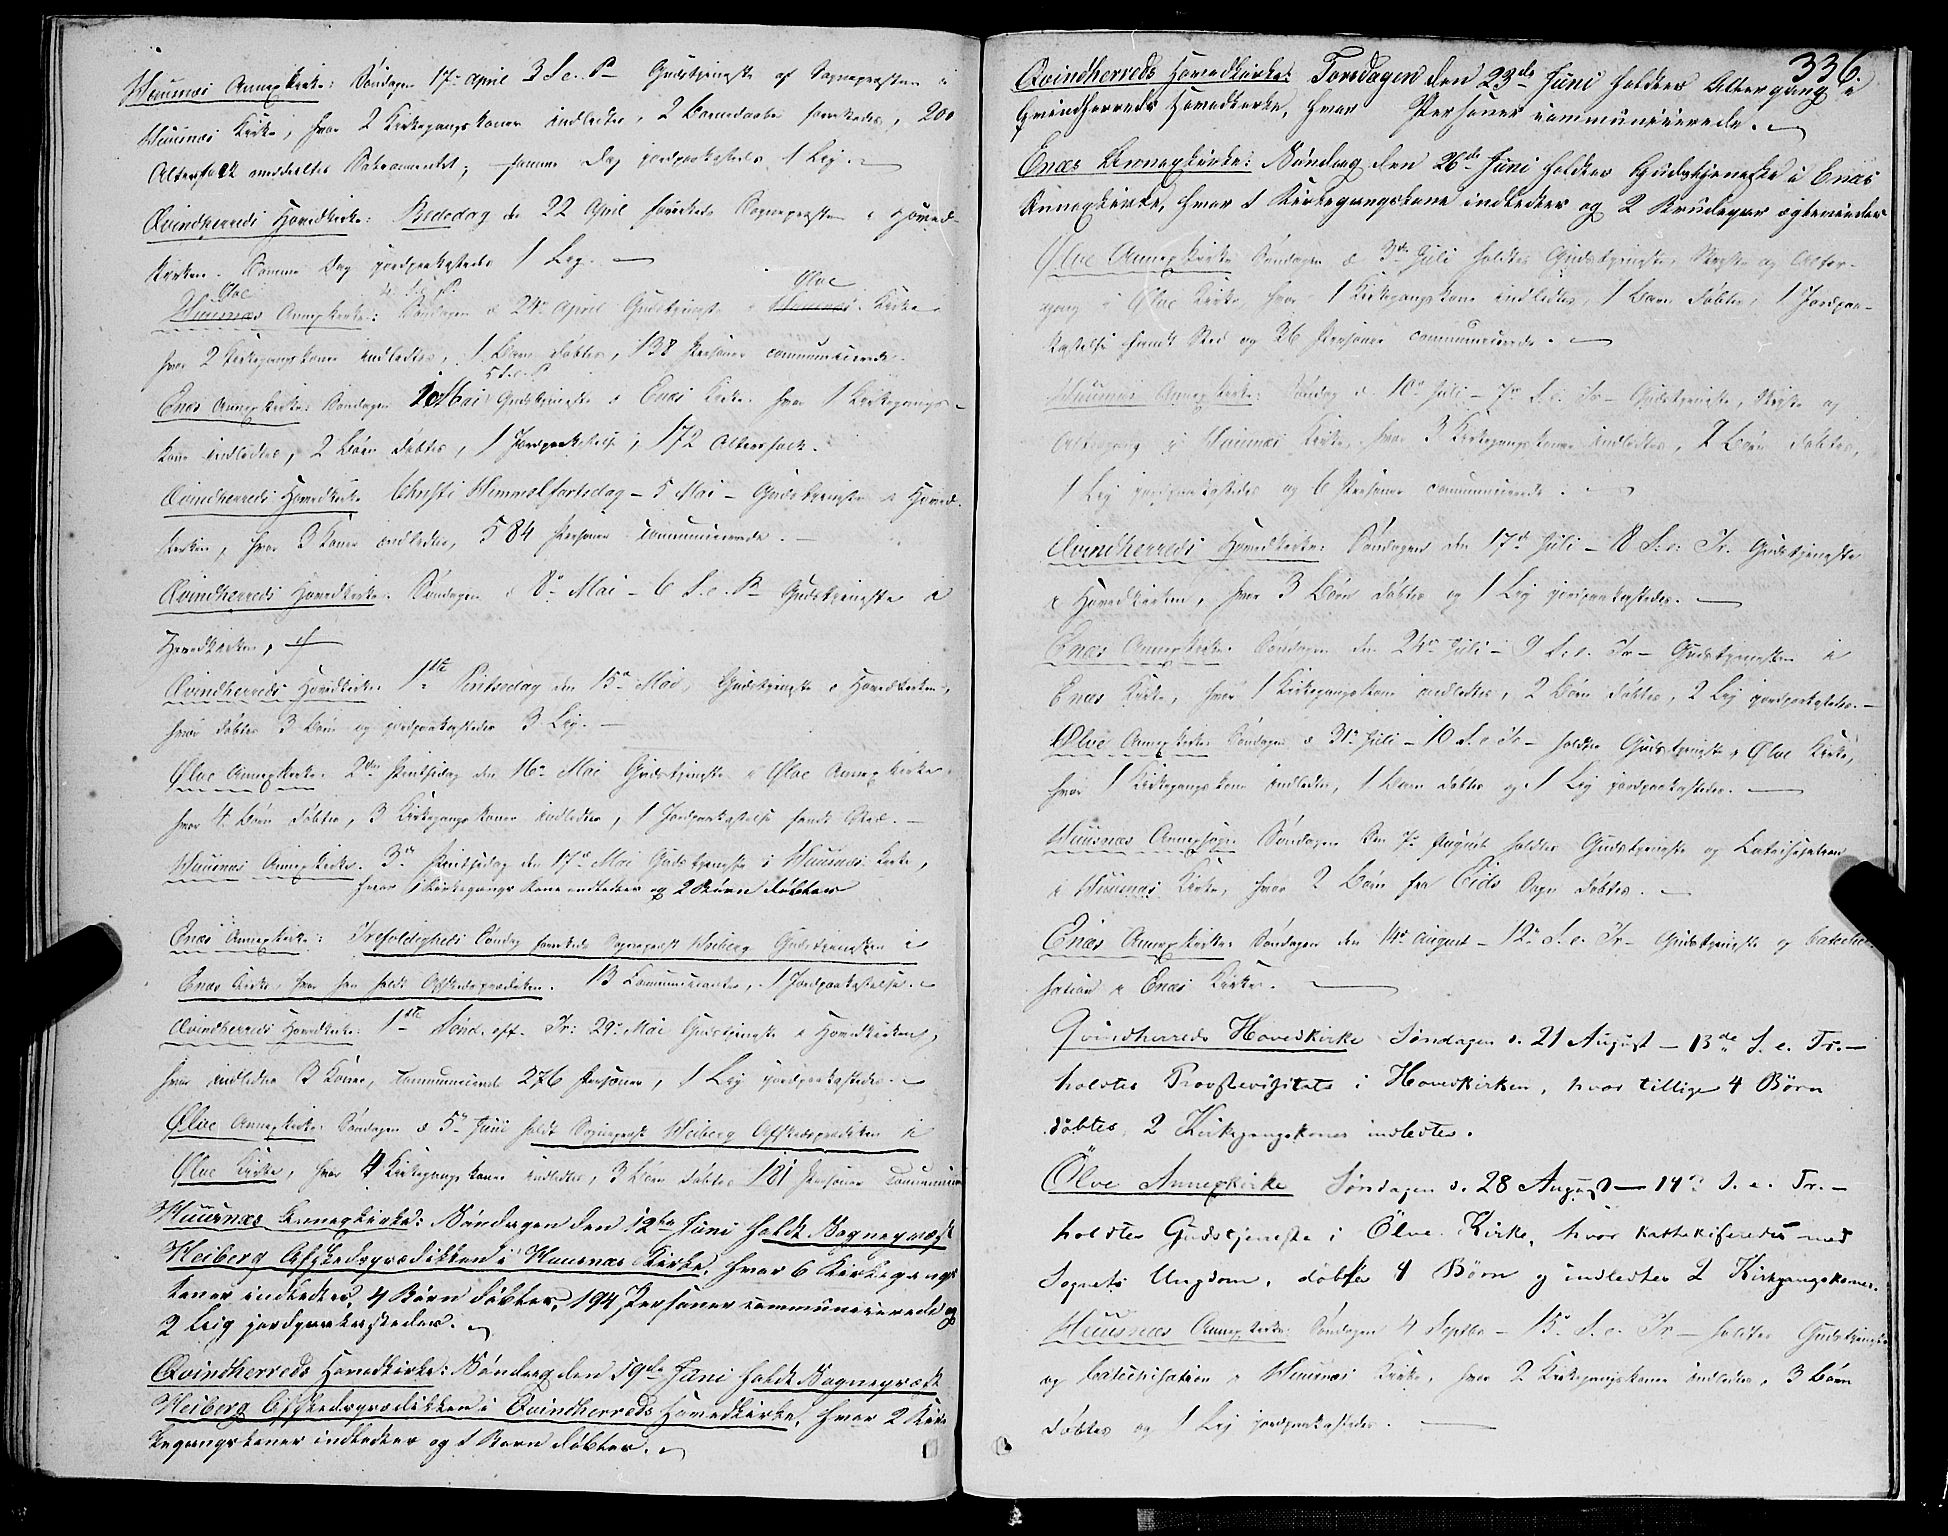 Huusnæs Annexkirke: Søndagen 17de april 3 S. e. P. Gudstjeneste af Sognepræsten i
Huusnæs Kirke, hvor 2 Kirkegangskoner indledtes, 2 Barnedaaber forrettedes, 200
Altersfolk meddeeltes Sakramentet; samme Dag jordpaakastedes 1 Lig.
Qvindherreds Hovedkirke: Bededag den 22 April forrettede Sognepræsten i Hoved-
kirken. Samme Dag jordpaakastedes 1 Lig.
Ølve 4 S. e. P. Ølve
Huusnæs Annexkirke: Søndagen d 24de April Gudstjeneste i Huusnæs Kirke
hvor 2 Kirkegangskoner indledtes, 1 Barn døbtes, 138 Personer communicerede.
5 S. e. P
Enæs Annexkirke Søndagen 1 Mai Gudstjeneste i Enæs Kirke hvor 1 Kirkegangs-
kone indledtes, 2 Børn døbtes, 1 Jordpaakastelse, 172 Altersfolk.
Qvindherreds Hovedkirke Christi Himmelfartsdag – 5 Mai – Gudstjeneste i Hoved-
kirken, hvor 3 Koner indledtes, 584 Personer communicerede.
Qvindherreds Hovedkirke. Søndagen d 8de Mai – 6 S. e. P. Gudstjeneste i
Hovedkirken,
Qvindherreds Hovedkirke 1ste Pintsedag den 15de Mai, Gudstjeneste i Hovedkirken,
hvor døbtes 3 Børn og jordpaakastedes 3 Lig.
Ølve Annexkirke. 2den Pintsedag den 16de Mai Gudstjeneste i Ølve Annexkirke
hvor 4 Børn døbtes, 3 Kirkegangskoner indledtes, 1 Jordpaakastelse fandt Sted.
Huusnæs Annexkirke. 3die Pintsedag den 17de Mai Gudstjeneste i Huusnæs Kirke,
hvor 1 Kirkegangskone indledtes og 2 Børn døbtes
Enæs Annexkirke: Trefoldigheds Søndag forrettede Sognepræst Heiberg Gudstjenesten i
Enæs Kirke, hvor han holdt Afskedsprædiken. 13 Communicanter, 1 Jordpaakastelse.
Qvindherreds Hovedkirke: 1ste Sønd. eft. Tr: 29de Mai Gudstjeneste i Hovedkirken,
hvor indledtes 3 Koner, communicerede 276 Personer, 1 Lig jordpaakastedes.
Ølve Annexkirke Søndagen d 5te Juni holdt Sognepræst Heiberg Afskedsprædiken i
Ølve Kirke, hvor 4 Kirkegangskoner indledtes, 3 Børn døbtes 181 Personer communicer
Huusnæs Annexkirke: Søndagen den 12te Juni holdt Sognepræst
Heiberg Afskedsprædikken i Huusnæs Kirke, hvor 6 Kirkegangs
koner indledtes, 4 Børn døbtes, 194 Personer communicerede og
2 Liig jordpaakastedes.
Qvindherreds Hovedkirke: Søndag den 19de Juni holdt Sognepræst
Heiberg Afskedsprædikken i Qvindherreds Hovedkirke, hvor 2 Kir
kegangskoner indledtes og 1 Barn døbtes.
336.
Qvindherreds Hovedkirke: Torsdagen den 23de Juni holdtes Altergang i
Qvindherreds Hovedkirke, hvor Personer communicerede.
Enæs Annexkirke: Søndag den 26de Juni holdtes Gudstjeneste i Enæs
Annexkirke, hvor 1 Kirkegangskone indledtes og 2 Brudepar ægteviedes
Ølve Annexkirke Søndagen d 3die Juli holdtes Gudstjeneste, Skrifte og Alter-
gang i Ølve Kirke, hvor 1 Kirkegangskone indledtes, 1 Barn døbtes, 1 Jordpaa-
kastelse fandt Sted og 36 Personer communicerede.
Huusnæs Annexkirke: Søndag d 10de Juli – 7de S. e. Tr – Gudstjeneste, Skrifte og
Altergang i Huusnæs Kirke, hvor 3 Kirkegangskoner indledtes, 2 Børn døbtes,
1 Lig jordpaakastedes og 6 Personer communicerede.
Qvindherreds Hovedkirke: Søndagen den 17de Juli – 8 S. e. Tr. Gudstjeneste
i Hovedkirken, hvor 3 Børn døbtes og 1 Lig jordpaakastedes.
Enæs Annexkirke Søndagen den 24de Juli – 9 S. e. Tr – Gudstjenesten i
Enæs Kirke, hvor 1 Kirkegangskone indledtes, 2 Børn døbtes, 2 Lig jordpaakastedes.
Ølve Annexkirke Søndagen d 31te Juli – 10 S. e. Tr – holdtes Gudstjeneste i Ølve Kirke,
hvor 1 Kirkegangskone indledtes, 1 Barn døbtes og 1 Lig jordpaakastedes.
Huusnæs Annexsogn Søndagen den 7de August holdtes Gudstjeneste og Catechisation
i Huusnæs Kirke, hvor 2 Børn fra Eids Sogn døbtes.
Enæs Annexkirke Søndagen den 14de August – 12te S. e. Tr – Gudstjeneste og Catechi-
sation i Enæs Kirke.
Qvindherreds Hovedkirke Søndagen d. 21 August – 13de S. e. Tr. –
holdtes Provstevisitats i Hovedkirken, hvor tillige 4 Børn
døbtes, 2 Kirkegangskoner indledtes.
Ölve Annexkirke Søndagen d. 28 August – 14de S. e. Tr. –
holdtes Gudstjeneste i Ölve Kirke, hvor kathekiseredes med
Sognets Ungdom, døbtes 4 Børn og indledtes 2 Kirkgangskoner.
Huusnæs Annexkirke Søndagen 4 Septbr – 15de S. e. Tr – holdtes Gudstjeneste
og Catechisation i Huusnæs Kirke, hvor 2 Kirkegangskoner indledtes, 3 Børn
døbtes og 1 Lig jordpaakastedes.